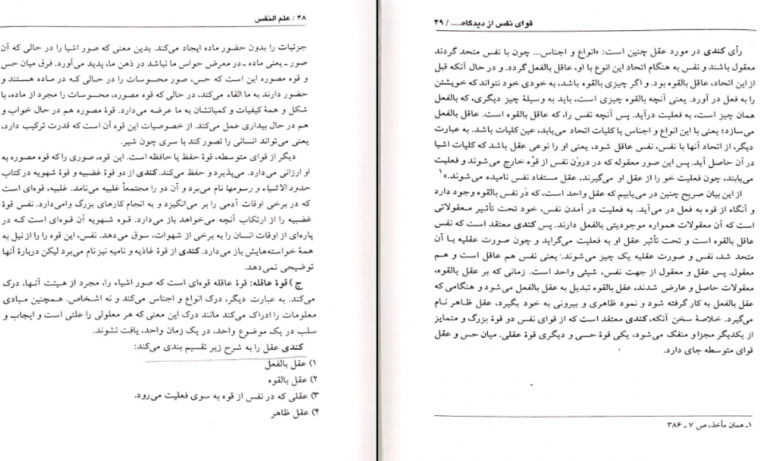 ۴۸ / علم النفس
جزئیات را بدون حضور ماده ایجاد می‌کند. بدین معنی که صور اشیا را در حالی که آن
صور ـ یعنی ماده ـ در معرض حواس ما نباشد در ذهن ما، پدید می‌آورد. فرق میان حس
و قوه مصوره این است که حس، صور محسوسات را در حالی که در ماده هستند و
حضور دارند به ما القاء می‌کند، در حالی که قوه مصوره، محسوسات را مجرد از ماده، با
شکل و همهٔ کیفیات و کمیاتشان به ما عرضه می‌دارد. قوهٔ مصوره هم در حال خواب و
هم در حال بیداری عمل می‌کند. از خصوصیات این قوه آن است که قدرت ترکیب دارد،
یعنی می‌تواند انسانی را تصور کند با سری چون شیر.
دیگر از قوای متوسطه، قوهٔ حفظ یا حافظه است. این قوه، صوری را که قوه مصوره به
او ارزانی می‌دارد. می‌پذیرد و حفظ می‌کند. کندی از دو قوهٔ غضبیه و قوهٔ شهویه در کتاب
حدود الاشیاء و رسومها نام می‌برد و آن دو را مجتمعاً غلبیه می‌نامد. غلبیه، قوه‌ای است
که در برخی اوقات آدمی را بر می‌انگیزد و به انجام کارهای بزرگ وامی‌دارد. نفس قوهٔ
غضبیه را از ارتکاب آنچه می‌خواهد باز می‌دارد. قوه شهویه آن قوه‌ای است که در
پاره‌ای از اوقات انسان را به برخی از شهوات، سوق می‌دهد. نفس، این قوه را را از نیل به
همهٔ خواسته‌هایش باز می‌دارد. کندی از قوهٔ غاذیه و نامیه نیز نام می‌برد لیکن دربارهٔ آنها
توضیحی نمی‌دهد.
ج) قوهٔ عاقله: قوهٔ عاقله قوه‌ای است که صور اشیاء را، مجرد از هیئت آنها، درک
می‌کند. به عبارت دیگر، درک انواع و اجناس می‌کند و نه اشخاص. همچنین مبادی
معلومات را ادراک می‌کند مانند درک این معنی که هر معلولی را علتی است و ایجاب و
سلب در یک موضوع واحد، در یک زمان واحد، یافت نشوند.
کندی عقل را به شرح زیر تقسیم بندی می‌کند:
۱) عقل بالفعل
۲) عقل بالقوه
۳) عقلی که در نفس از قوه به سوی فعلیت می‌رود.
۴) عقل ظاهر
قوای نفس از دیدگاه.... / ۴۹
رأی کندی در مورد عقل چنین است: «انواع و اجناس... چون با نفس متحد گردند
معقول باشند و نفس به هنگام اتحاد این انواع با او، عاقل بالفعل گردد. و در حال آنکه قبل
از این اتحاد، عاقل بالقوه بود. و اگر چیزی بالقوه باشد، به خودی خود نتواند که خویشتن
را به فعل در آورد. یعنی آنچه بالقوه چیزی است، باید به وسیلهٔ چیز دیگری، که بالفعل
همان چیز است، به فعلیت درآید. پس آنچه نفس را، که عاقل بالقوه است. عاقل بالفعل
می‌سازد؛ یعنی با این انواع و اجناس یا کلیات اتحاد می‌یابد، عین کلیات باشد. به عبارت
دیگر، از اتحاد آنها با نفس، نفس عاقل شود، یعنی او را نوعی عقل باشد که کلیات اشیا
در آن حاصل آید. پس این صور معقوله که در درون نفس از قوه خارج می‌شوند و فعلیت
می‌یابند، چون فعلیت خود را از عقل او می‌گیرند، عقل مستفاد نفس نامیده می‌شوند.»۱
از این بیان صریح چنین در می‌یابیم که عقل واحد است، که در نفس بالقوه وجود دارد
و آنگاه از قوه به فعل در می‌آید. به فعلیت در آمدن نفس، خود تحت تأثیر معقولاتی
است که آن معقولات همواره موجودیتی بالفعل دارند. پس کندی معتقد است که نفس
عاقل بالقوه است و تحت تأثیر عقل او به فعلیت می‌گراید و چون صورت عقلیه با آن
متحد شد، نفس و صورت عقلیه یک چیز می‌شوند؛ یعنی نفس هم عاقل است و هم
معقول. پس عقل و معقول از جهت نفس، شیئی واحد است. زمانی که بر عقل بالقوه،
معقولات حاصل و عارض شدند، عقل بالقوه تبدیل به عقل بالفعل می‌شود و هنگامی که
عقل بالفعل به کار گرفته شود و نمود ظاهری و بیرونی به خود بگیرد، عقل ظاهر نام
می‌گیرد. خلاصهٔ سخن آنکه، کندی معتقد است که از قوای نفس دو قوهٔ بزرگ و متمایز
از یکدیگر مجزا و منفک می‌شود، یکی قوهٔ حسی و دیگری قوهٔ عقلی. میان حس و عقل
قوای متوسطه جای دارد.
۱ـ همان مأخذ، ص ۷ ـ ۳۸۶